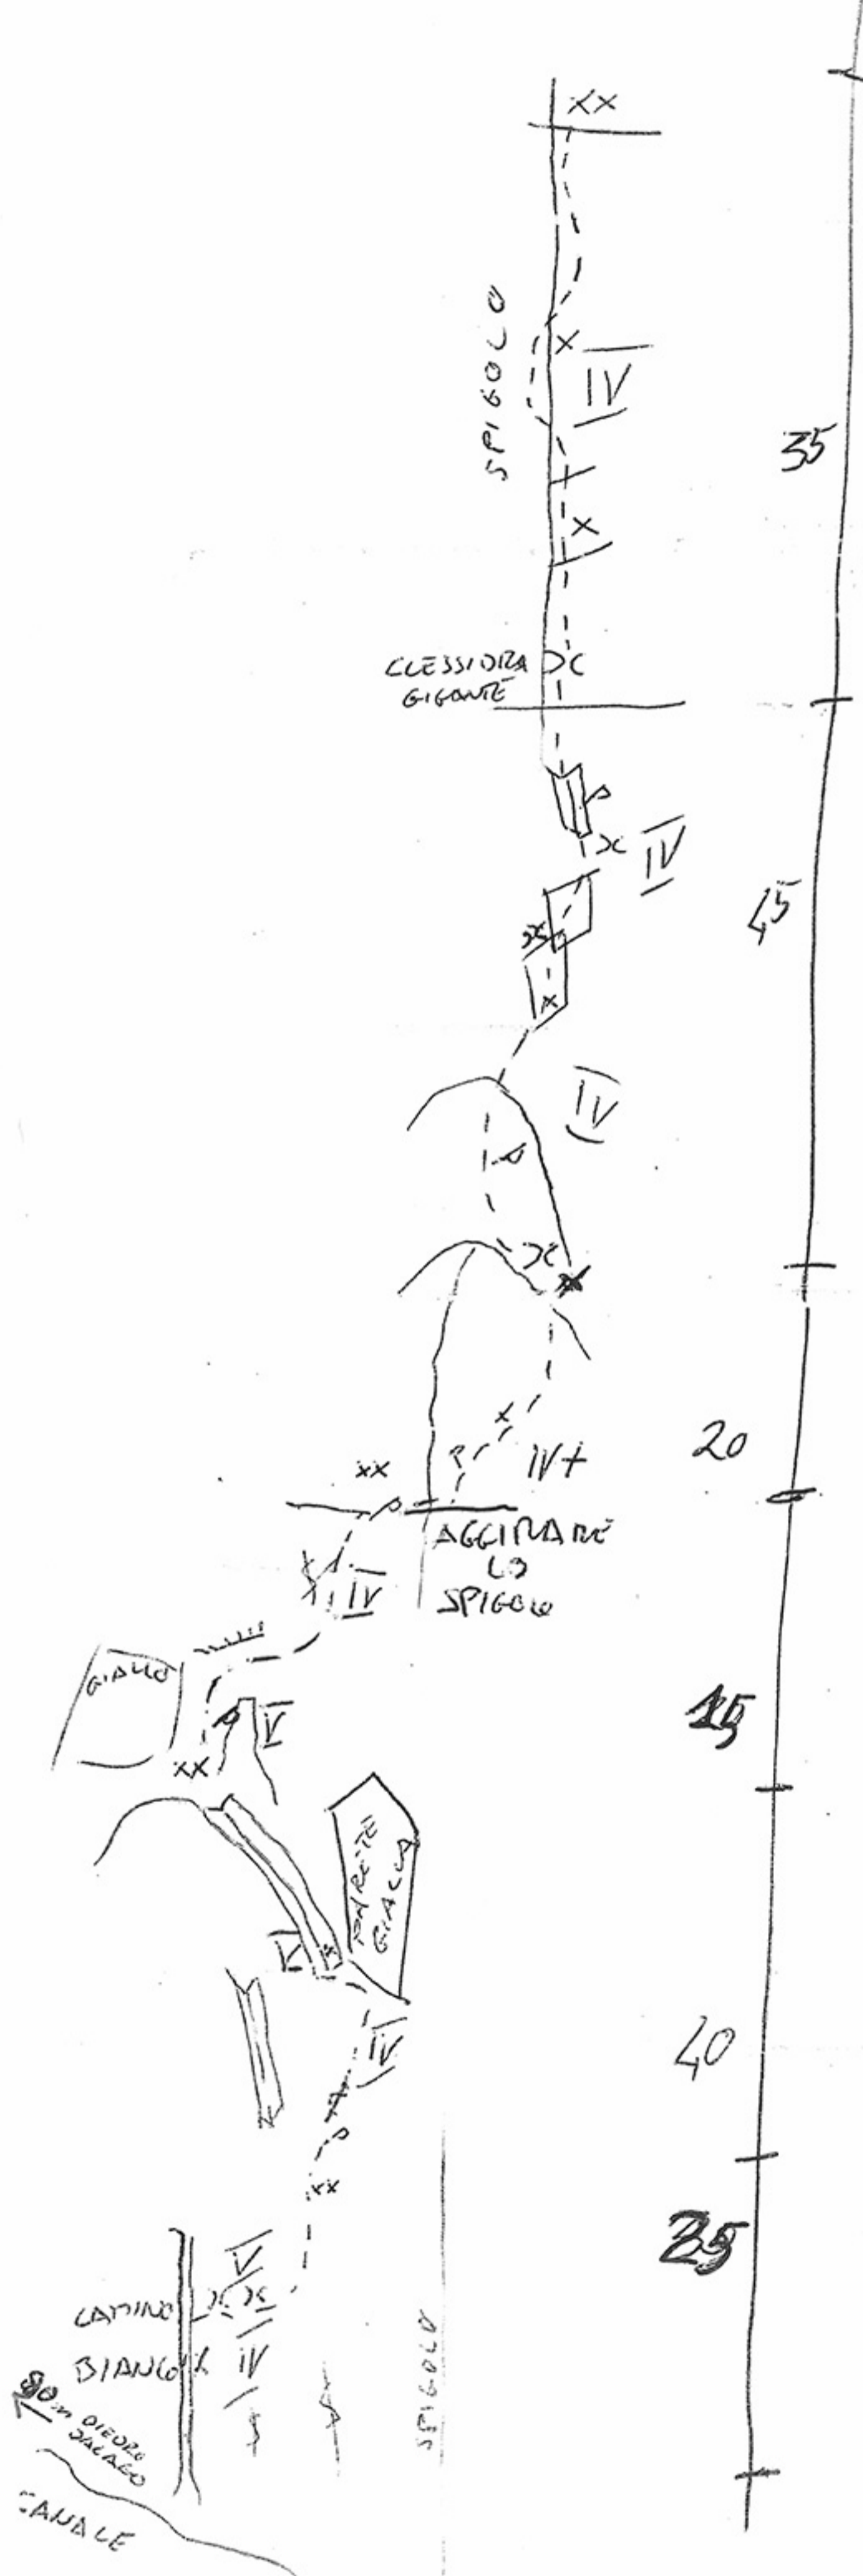 XX
SPIGOLO
X
IV
35
X
CLESSIDRA
GIGANTE
IV
45
X
IV
20
X
IV+
XX
AGGIRARE
LO
SPIGOLO
IV
GIALLO
V
15
XX
PARETE
GIALLA
V
IV
40
XX
35
V
CAMINO
BIANCO
IV
SPIGOLO
80m DIEDRO
CANALE